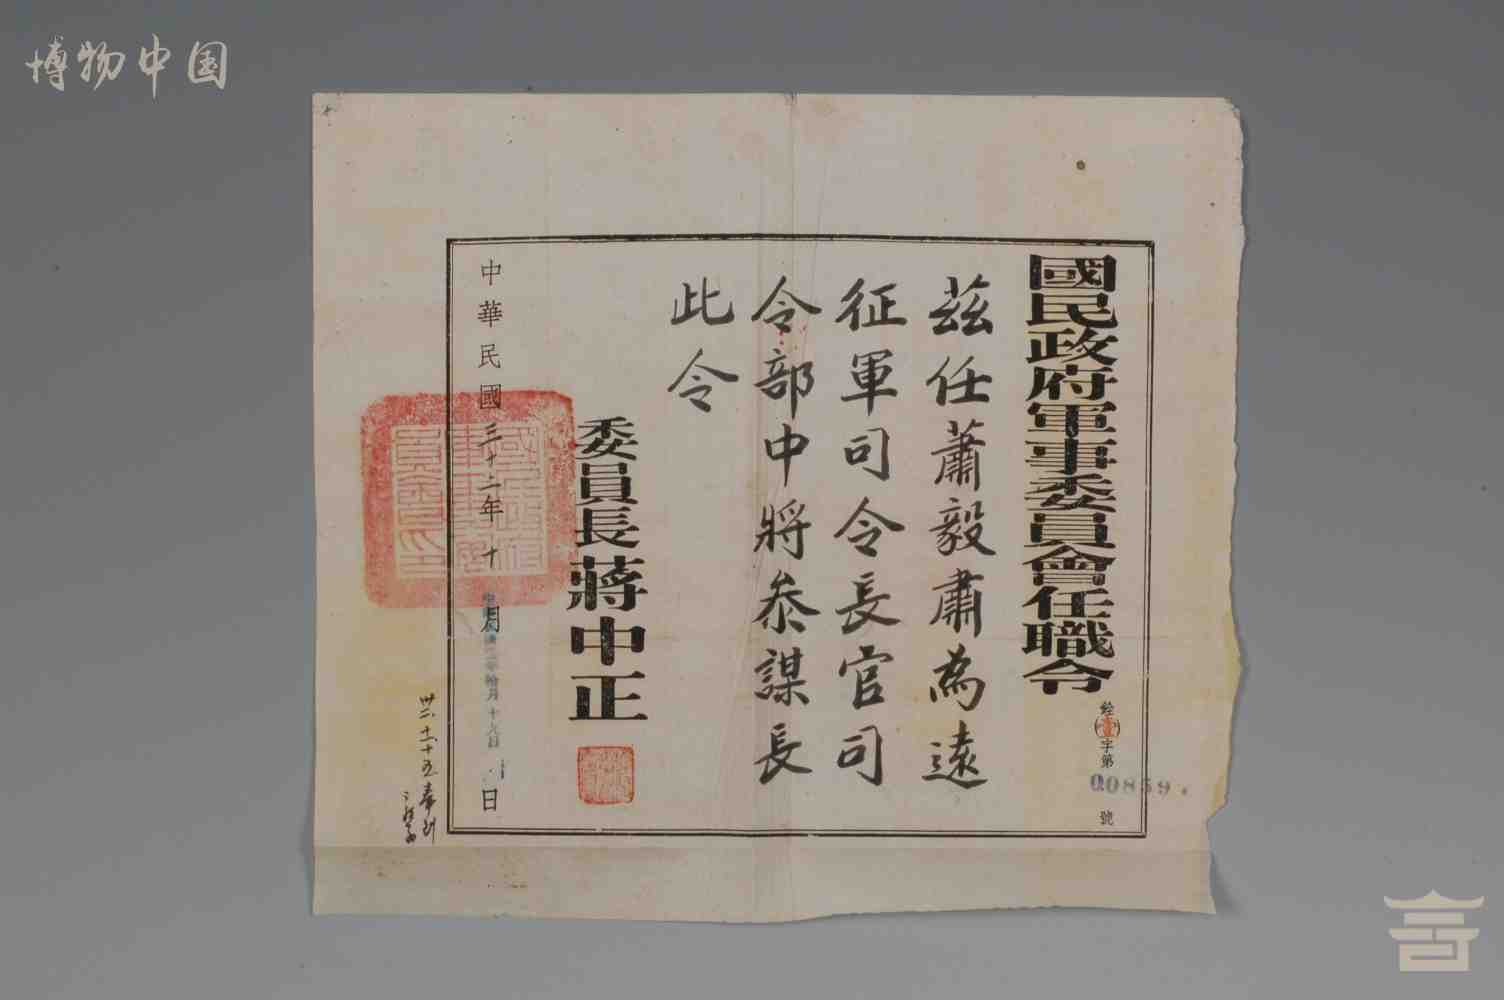 博物中国
國民政府軍事委員會任職令
銓(壹)字第00859號
茲任蕭毅肅為遠
征軍司令長官司
令部中將參謀長
此令
委員長蔣中正
中華民國三十二年十月 日
國民政府軍事委員會印
十月十九日
卅二、十一、十五奉到